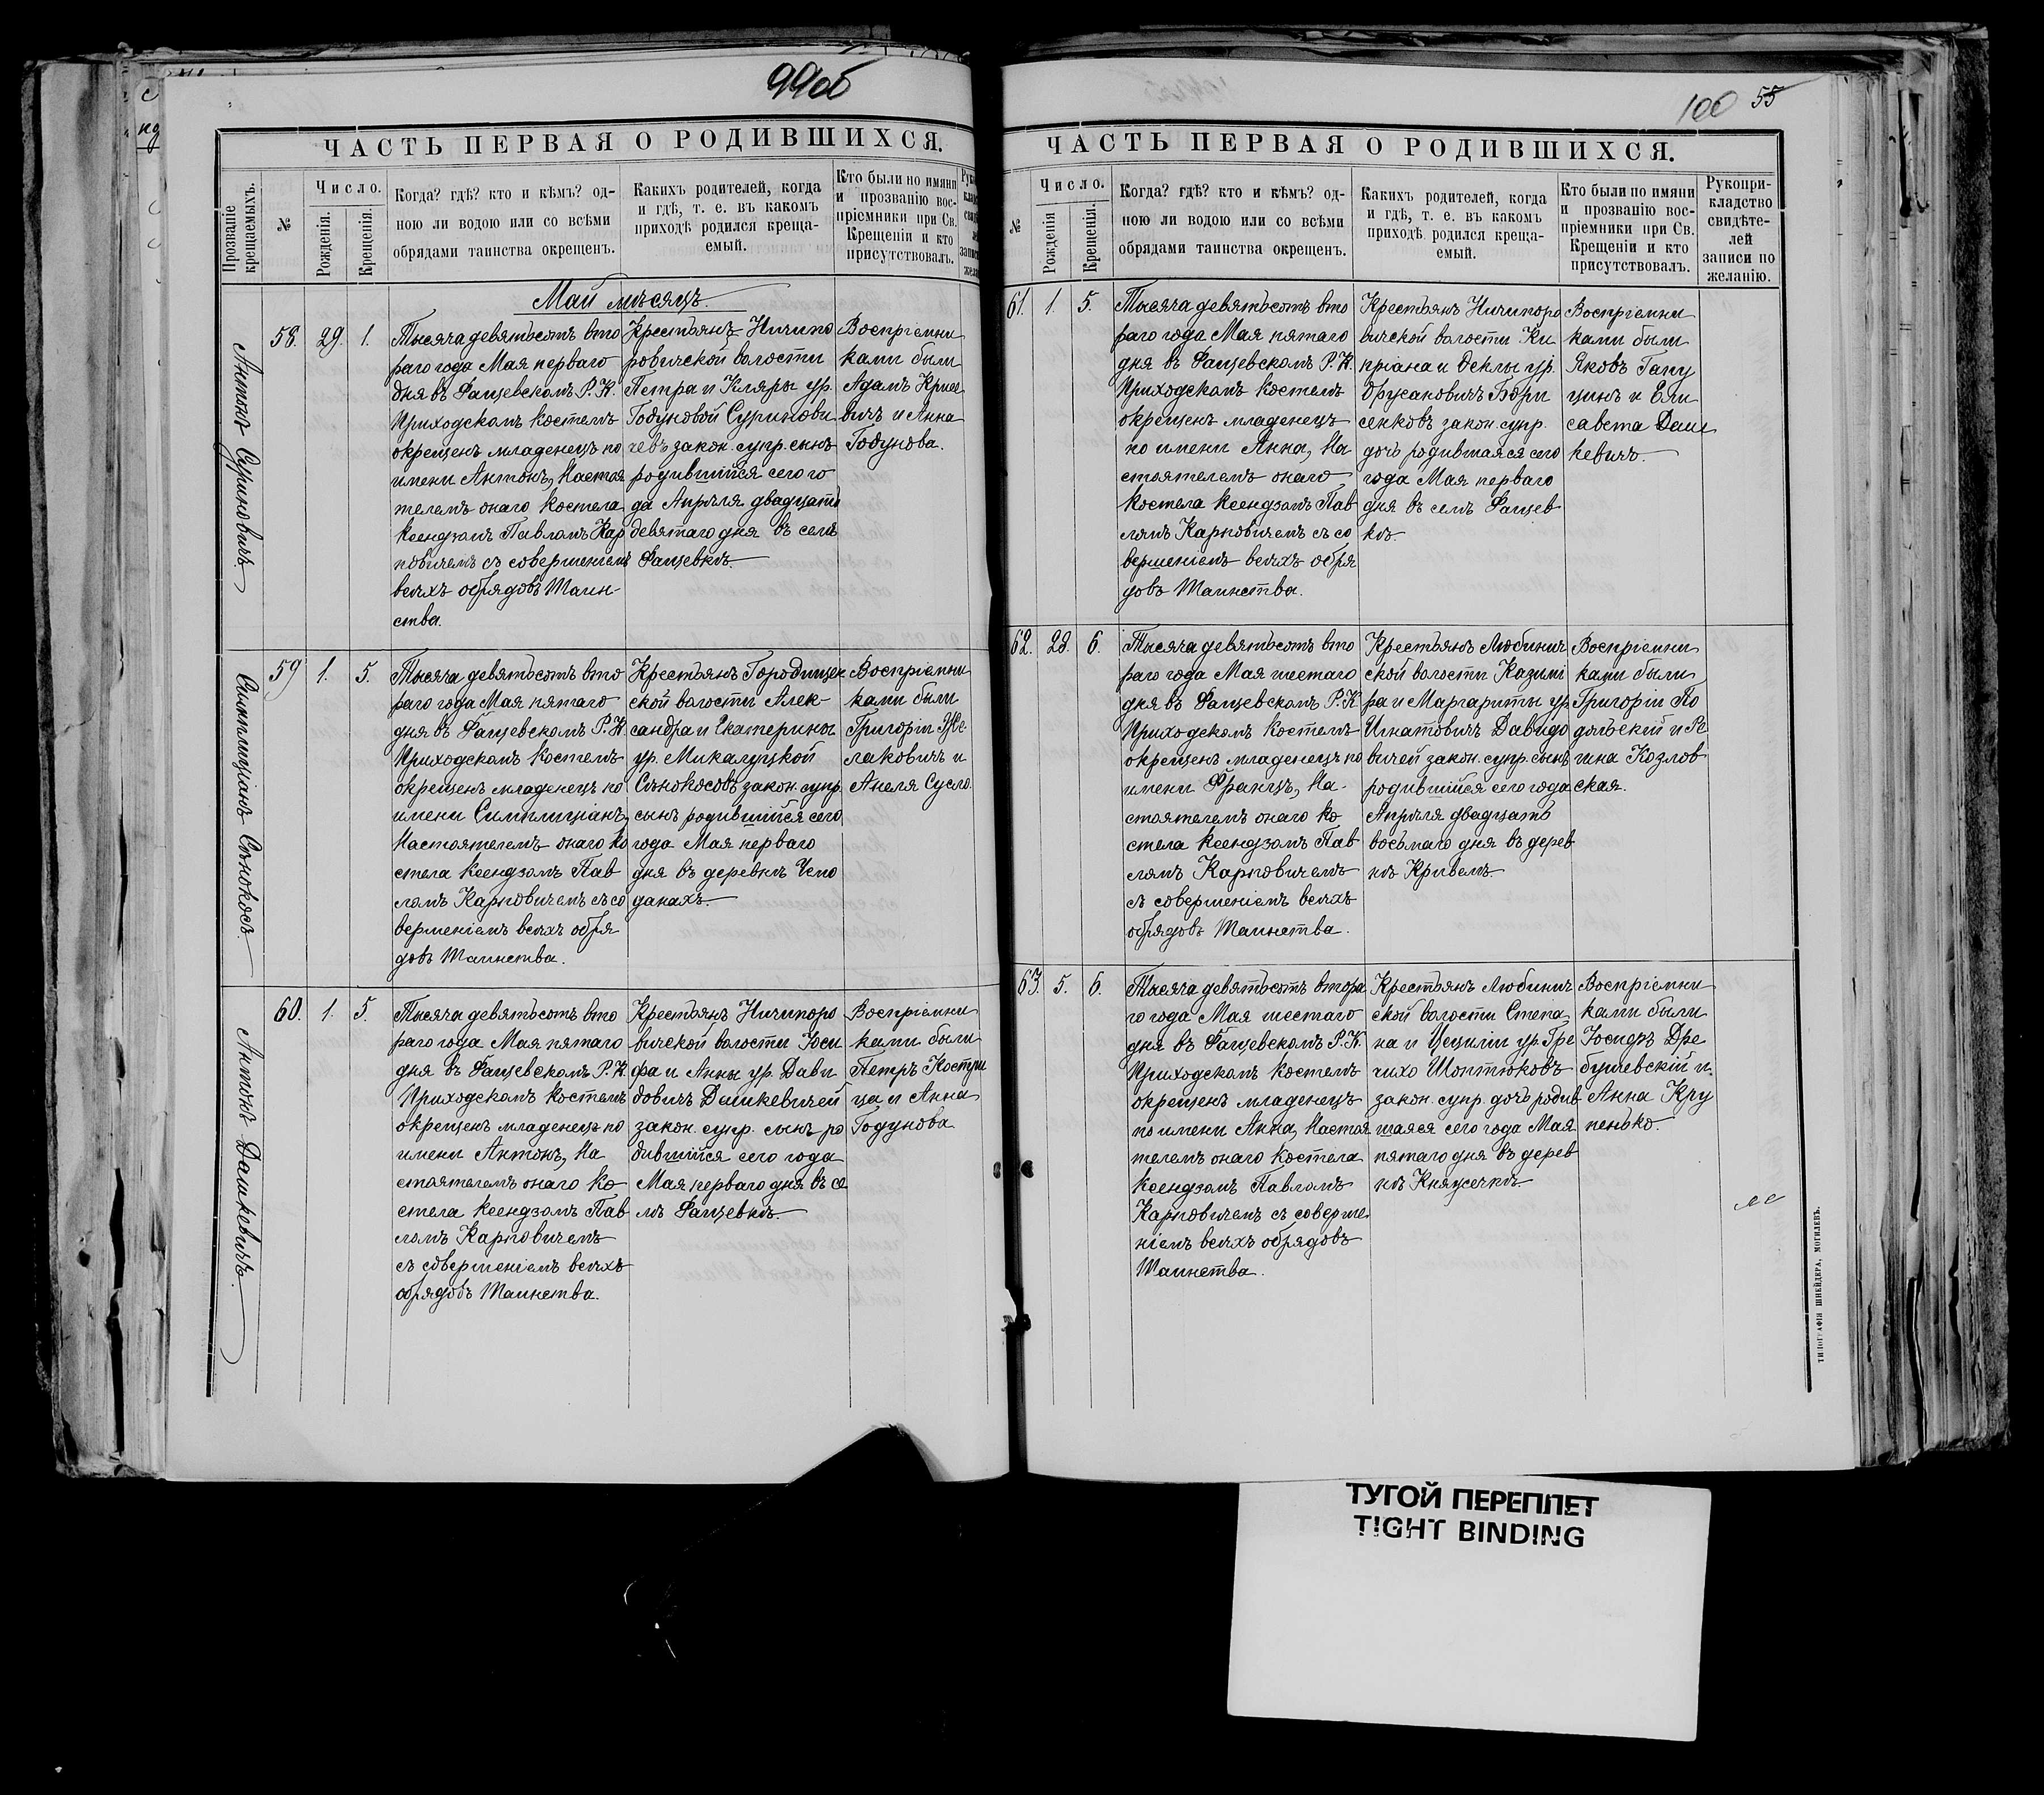 99об
ЧАСТЬ ПЕРВАЯ О РОДИВШИХСЯ.
Прозваніе крещаемыхъ.
№
Число.
Рожденія.
Крещенія.
Когда? гдѣ? кто и кѣмъ? од-
ною ли водою или со всѣми
обрядами таинства окрещенъ.
Какихъ родителей, когда
и гдѣ, т. е. въ какомъ
приходѣ родился креща-
емый.
Кто были по имяни
и прозванію вос-
пріемники при Св.
Крещеніи и кто
присутствовалъ.
Май мѣсяцъ.
Антонъ Суриновичъ
58. 29. 1.
Тысяча девятьсотъ вто
раго года Мая перваго
дня въ Фащевскомъ Р. К.
Приходскомъ костелѣ
окрещенъ младенецъ по
имени Антонъ, Настоя
телемъ онаго костела
Ксендзомъ Павломъ Кар
повичемъ съ совершеніемъ
всѣхъ обрядовъ Таин-
ства.
Крестьянъ Ничипо
ровичской волости
Петра и Кляры ур.
Годуновой Суринови
чевъ закон. супр. сынъ
родившійся сего го
да Апрѣля двадцать
девятаго дня въ селѣ
Фащевкѣ.
Воспріемни
ками были
Адамъ
и Анна
Годунова.
Симплиціанъ Сѣнокосъ.
59 1. 5.
Тысяча девятьсотъ вто
раго года Мая пятаго
дня въ Фащевскомъ Р. К.
Приходскомъ костелѣ
окрещенъ младенецъ по
имени Симплиціанъ,
Настоятелемъ онаго Ко
стела Ксендзомъ Пав
ломъ Карповичемъ съ со
вершеніемъ всѣхъ обря
довъ Таинства.
Крестьянъ Городищен
ской волости Алек-
сандра и Екатерины
ур. Микалуцкой
Сѣнокосовъ закон. супр.
сынъ родившійся сего
года Мая перваго
дня въ деревнѣ Чемо
данахъ.
Воспріемни
ками были
Григорій Же
лаковичъ и
Анеля Сусло.
Антонъ Дашкевичъ.
60. 1. 5.
Тысяча девятьсотъ вто
раго года Мая пятаго
дня въ Фащевскомъ Р. К.
Приходскомъ костелѣ
окрещенъ младенецъ по
имени Антонъ, На
стоятелемъ онаго ко
стела Ксендзомъ Пав
ломъ Карповичемъ
съ совершеніемъ всѣхъ
обрядовъ Таинства.
Крестьянъ Ничипоро
вичской волости Іоси
фа и Анны ур. Дави
довичъ Дашкевичей
закон. супр. сынъ ро
дившійся сего года
Мая перваго дня въ се
лѣ Фащевкѣ.
Воспріемни
ками были
Петръ Костри
ца и Анна
Годунова
100 55
ЧАСТЬ ПЕРВАЯ О РОДИВШИХСЯ.
№
Число.
Рожденія
Крещенія.
Когда? гдѣ? кто и кѣмъ? од-
ною ли водою или со всѣми
обрядами таинства окрещенъ.
Какихъ родителей, когда
и гдѣ, т. е. въ какомъ
приходѣ родился креща-
емый.
Кто были по имяни
и прозванію вос-
пріемники при Св.
Крещеніи и кто
присутствовалъ.
Рукопри-
кладство
свидѣте-
лей
записи по
желанію.
61. 1. 5.
Тысяча девятьсотъ вто
раго года Мая пятаго
дня въ Фащевскомъ Р. К.
Приходскомъ костелѣ
окрещенъ младенецъ
по имени Анна, На
стоятелемъ онаго
костела Ксендзомъ Пав
ломъ Карповичемъ съ со
вершеніемъ всѣхъ обря
довъ Таинства.
Крестьянъ Ничипоро
вичской волости Ки
пріана и Ѳеклы ур.
Бори
сенковъ закон. супр.
дочь родившаяся сего
года Мая перваго
дня въ селѣ Фащев
кѣ.
Воспріемни
ками были
Яковъ Гапу
цинъ и Ели
савета Даш
кевичъ.
62. 28. 6.
Тысяча девятьсотъ вто
раго года Мая шестаго
дня въ Фащевскомъ Р. К
Приходскомъ костелѣ
окрещенъ младенецъ по
имени Францъ, На-
стоятелемъ онаго ко
стела Ксендзомъ Пав
ломъ Карповичемъ
съ совершеніемъ всѣхъ
обрядовъ Таинства.
Крестьянъ Любинич
ской волости Казимі
ра и Маргариты ур
Игнатовичъ Давидо
вичей закон. супр. сынъ
родившійся сего года
Апрѣля двадцать
восьмаго дня въ дерев
нѣ Кривелѣ
Воспріемни
ками были
Григорій По
дольскій и Ре
гина Козлов
ская.
63. 5. 6.
Тысяча девятьсотъ втора
го года Мая шестаго
дня въ Фащевскомъ Р. К.
Приходскомъ костелѣ
окрещенъ младенецъ
по имени Анна, Настоя
телемъ онаго костела
Ксендзомъ Павломъ
Карповичемъ съ соверше
ніемъ всѣхъ обрядовъ
Таинства.
Крестьянъ Любинич
ской волости Степа
на и Цециліи ур. Гре
чихо Шоптюковъ
закон. супр. дочь родив
шаяся сего года Мая
пятаго дня въ дерев
нѣ Княжечкѣ.
Воспріемни
ками были
Іосифъ Дре
бушевскій и
Анна Кру
пенько.
ТИПОГРАФІЯ ШНЕЙДЕРА, МОГИЛЕВЪ.
ТУГОЙ ПЕРЕПЛЕТ
TIGHT BINDING